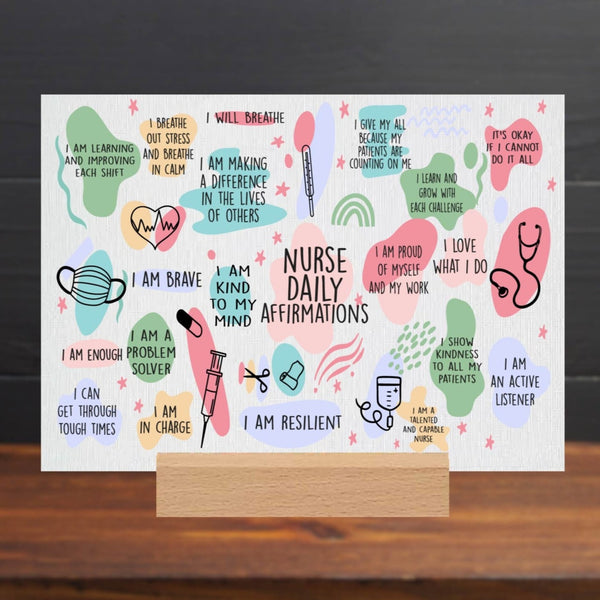 I AM LEARNING
AND IMPROVING
EACH SHIFT
I BREATHE
OUT STRESS
AND BREATHE
IN CALM
I WILL BREATHE
I AM MAKING
A DIFFERENCE
IN THE LIVES
OF OTHERS
I GIVE MY ALL
BECAUSE MY
PATIENTS ARE
COUNTING ON ME
IT'S OKAY
IF I CANNOT
DO IT ALL
I LEARN AND
GROW WITH
EACH CHALLENGE
I AM BRAVE
I AM
KIND
TO MY
MIND
NURSE
DAILY
AFFIRMATIONS
I AM PROUD
OF MYSELF
AND MY WORK
I LOVE
WHAT I DO
I AM ENOUGH
I AM A
PROBLEM
SOLVER
I SHOW
KINDNESS
TO ALL MY
PATIENTS
I AM
AN ACTIVE
LISTENER
I CAN
GET THROUGH
TOUGH TIMES
I AM
IN CHARGE
I AM RESILIENT
I AM A
TALENTED
AND CAPABLE
NURSE